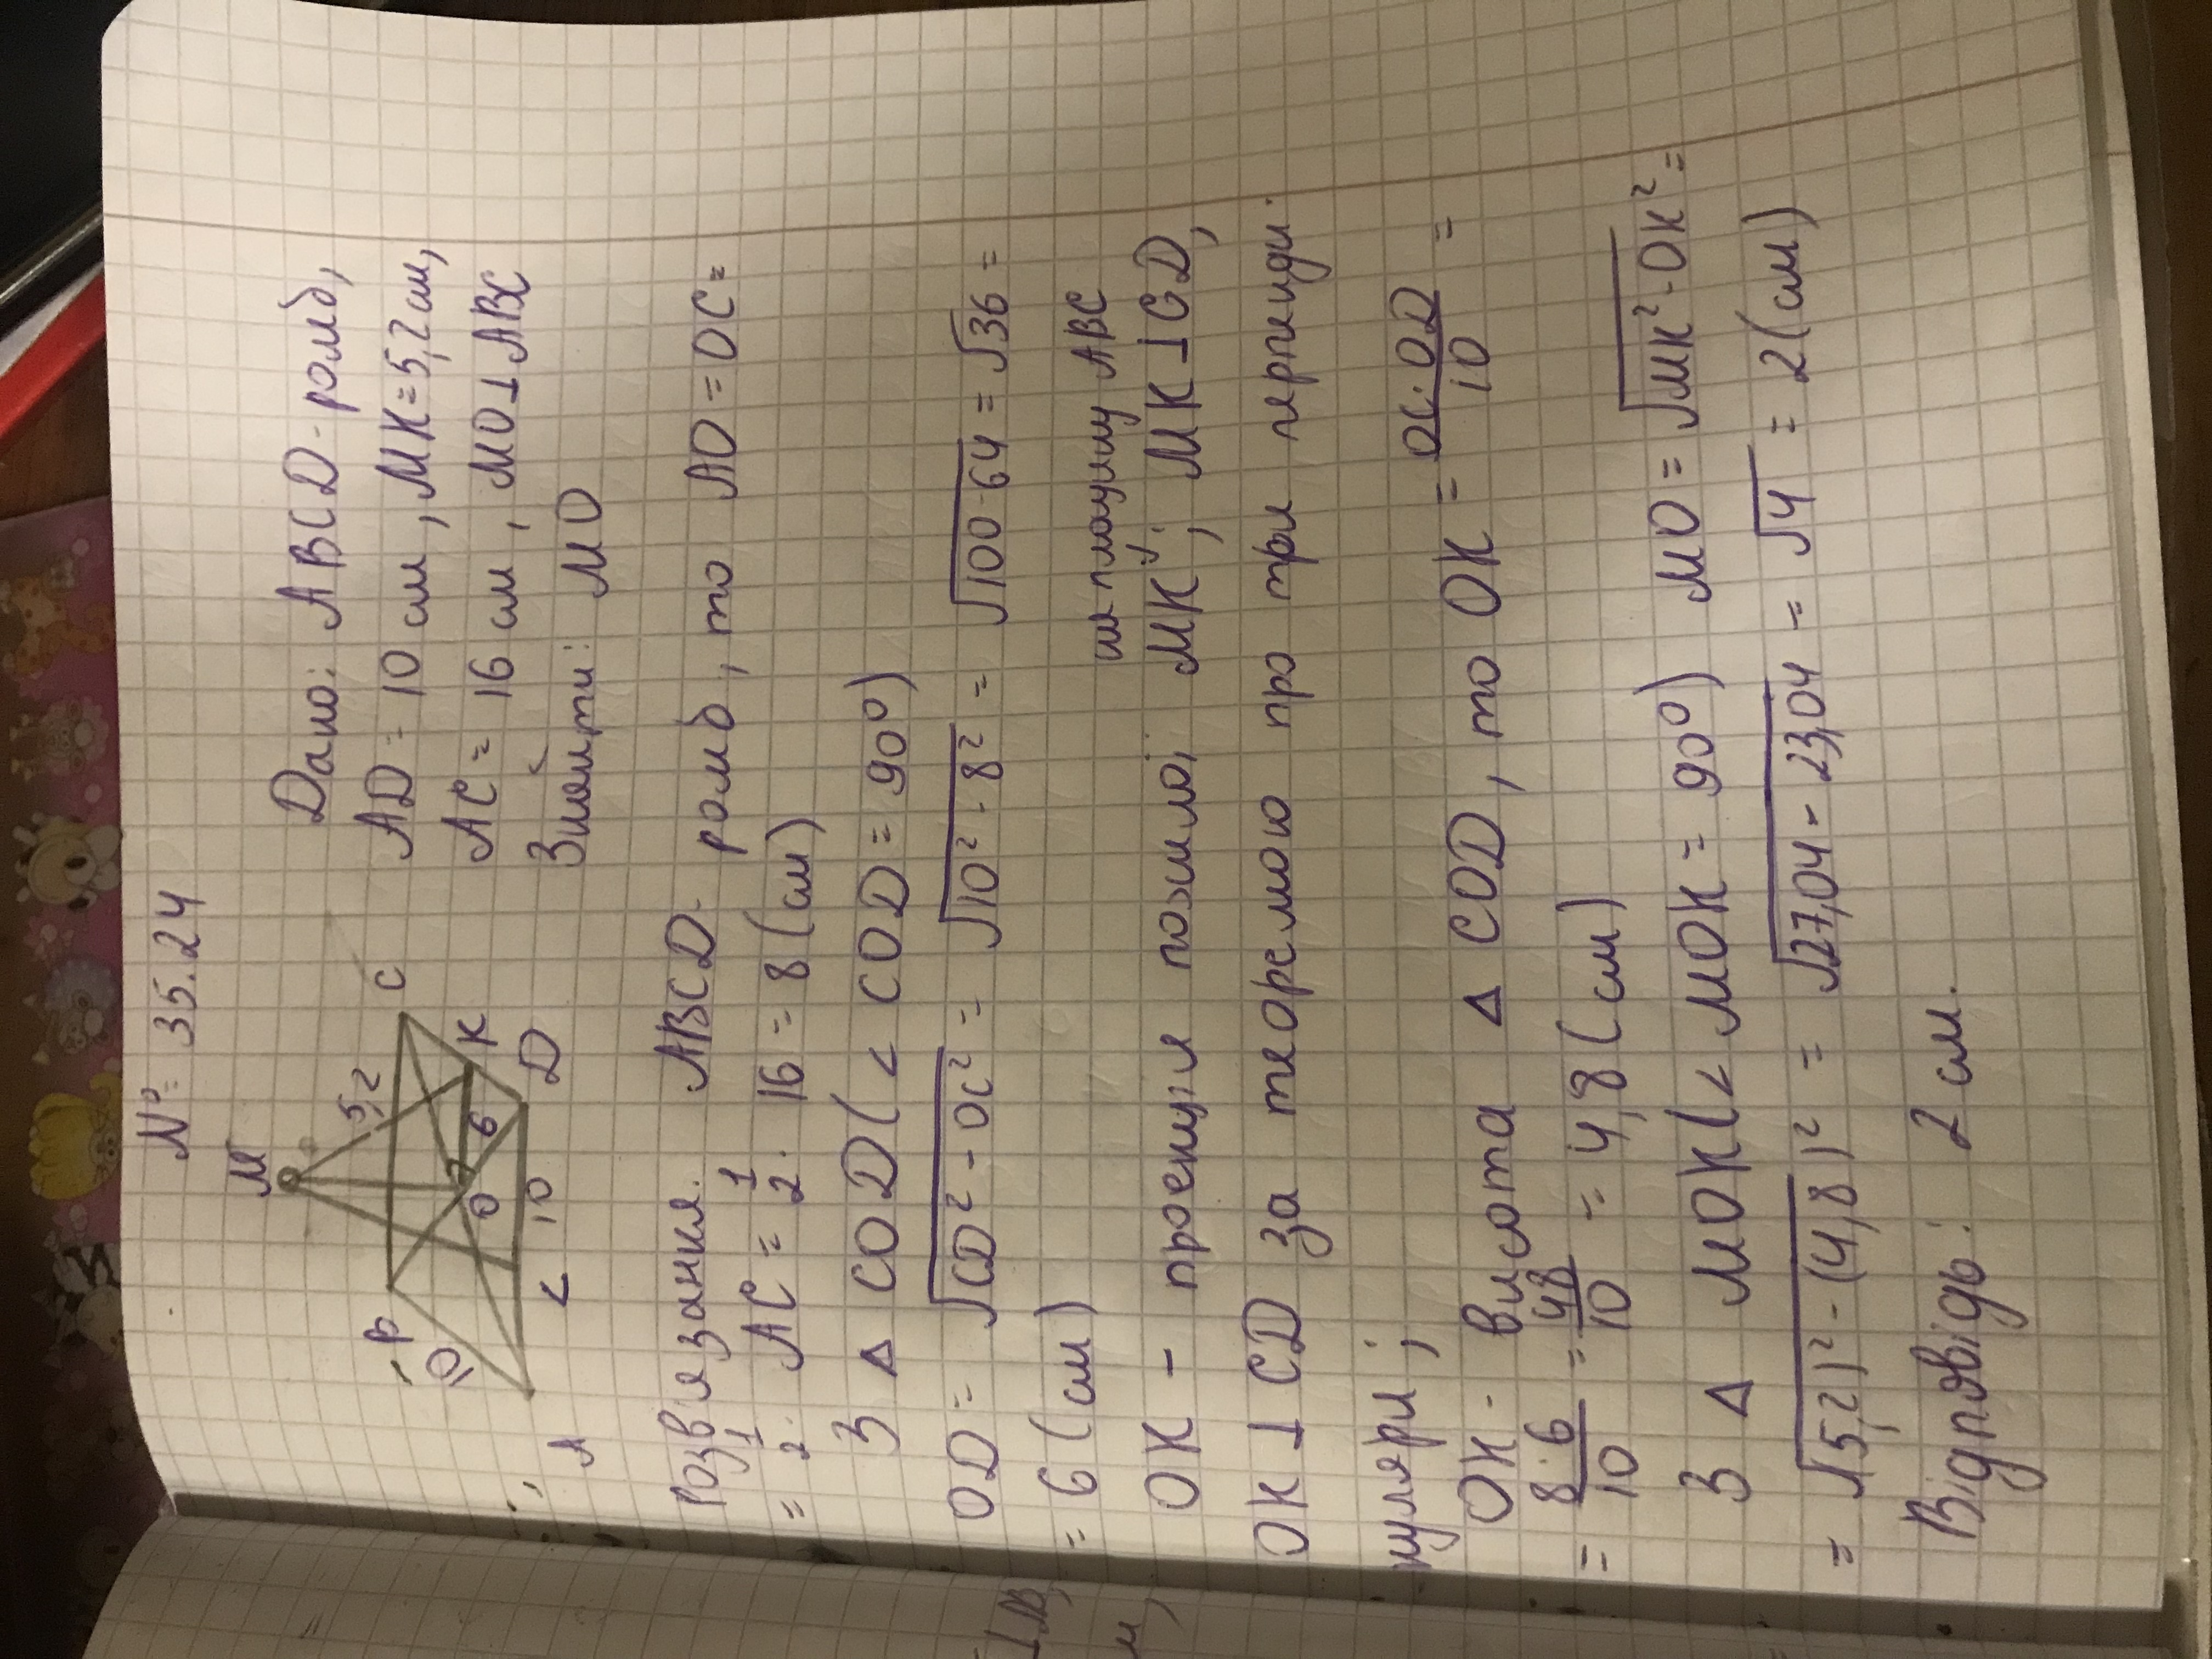 № 35.24
M
5,2
B
C
10
K
O
6
D
10
L
A
Дано: ABCD - ромб,
AD = 10 см, MK = 5,2 см,
AC = 16 см, MO ⊥ ABC
Знайти: MO
Розв'язання. ABCD - ромб, то AO = OC =
= 1/2 · AC = 1/2 · 16 = 8 (см)
З Δ COD (< COD = 90°)
OD = √CD² - OC² = √10² - 8² = √100 - 64 = √36 =
= 6 (см)
на площину ABC
OK - проекція похилої MK; MK ⊥ CD,
OK ⊥ CD за теоремою про три перпенди-
куляри;
OK - висота Δ COD, то OK = OC · OD / 10 =
= 8 · 6 / 10 = 48 / 10 = 4,8 (см)
З Δ MOK (< MOK = 90°) MO = √MK² - OK² =
= √(5,2)² - (4,8)² = √27,04 - 23,04 = √4 = 2 (см)
Відповідь: 2 см.